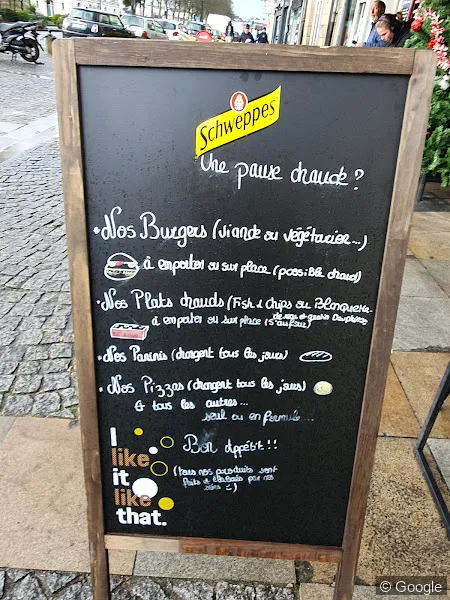 Schweppes
Une pause chaude ?
• Nos Burgers (viande ou végétarien...)
à emporter ou sur place (possible chaud)
• Nos Plats chauds (Fish & Chips ou Blanquette
de veau et gratin Dauphinois
à emporter ou sur place (s'au four)
• Nos Paninis (changent tous les jours)
• Nos Pizzas (changent tous les jours)
& tous les autres...
seul ou en formule...
Bon Appétit !!
(tous nos produits sont
faits et élaborés par nos
soins :-)
I
like
it
like
that.
© Google